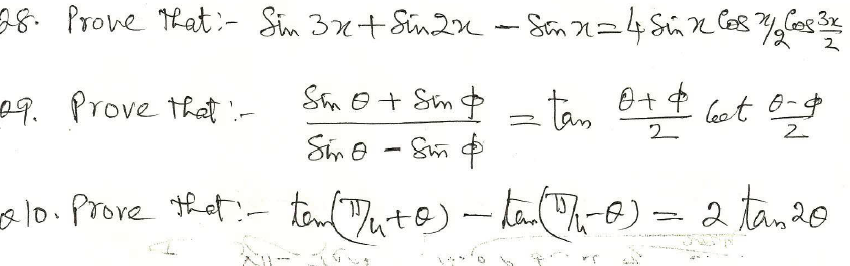 Q8. Prove that:- Sin 3x + Sin 2x - Sin x = 4 Sin x Cos x/2 Cos 3x/2
Q9. Prove that:- (Sin θ + Sin ϕ)/(Sin θ - Sin ϕ) = tan (θ+ϕ)/2 Cot (θ-ϕ)/2
Q10. Prove that:- tan(π/4+θ) - tan(π/4-θ) = 2 tan 2θ